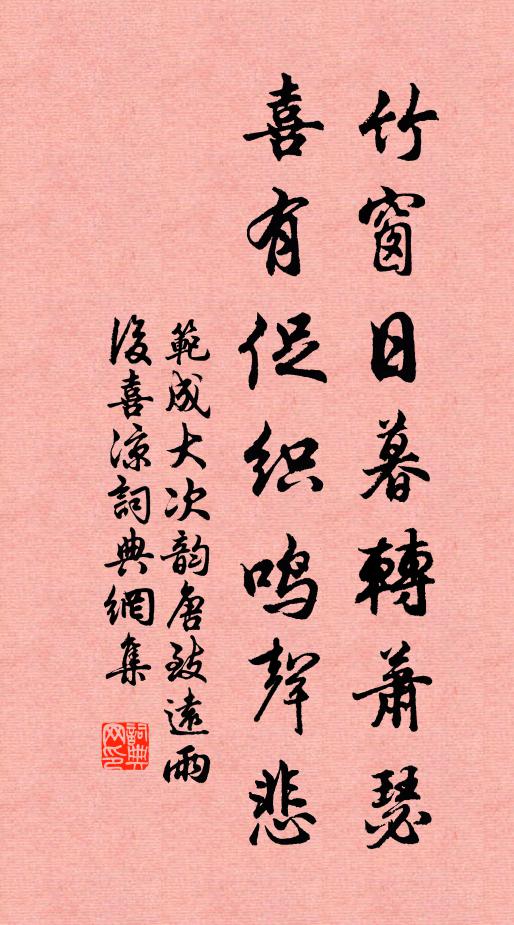 竹窗日暮轉蕭瑟
喜有促织鸣聲悲
範成大次韵唐致遠雨
後喜凉詞典網集
詞典
网印